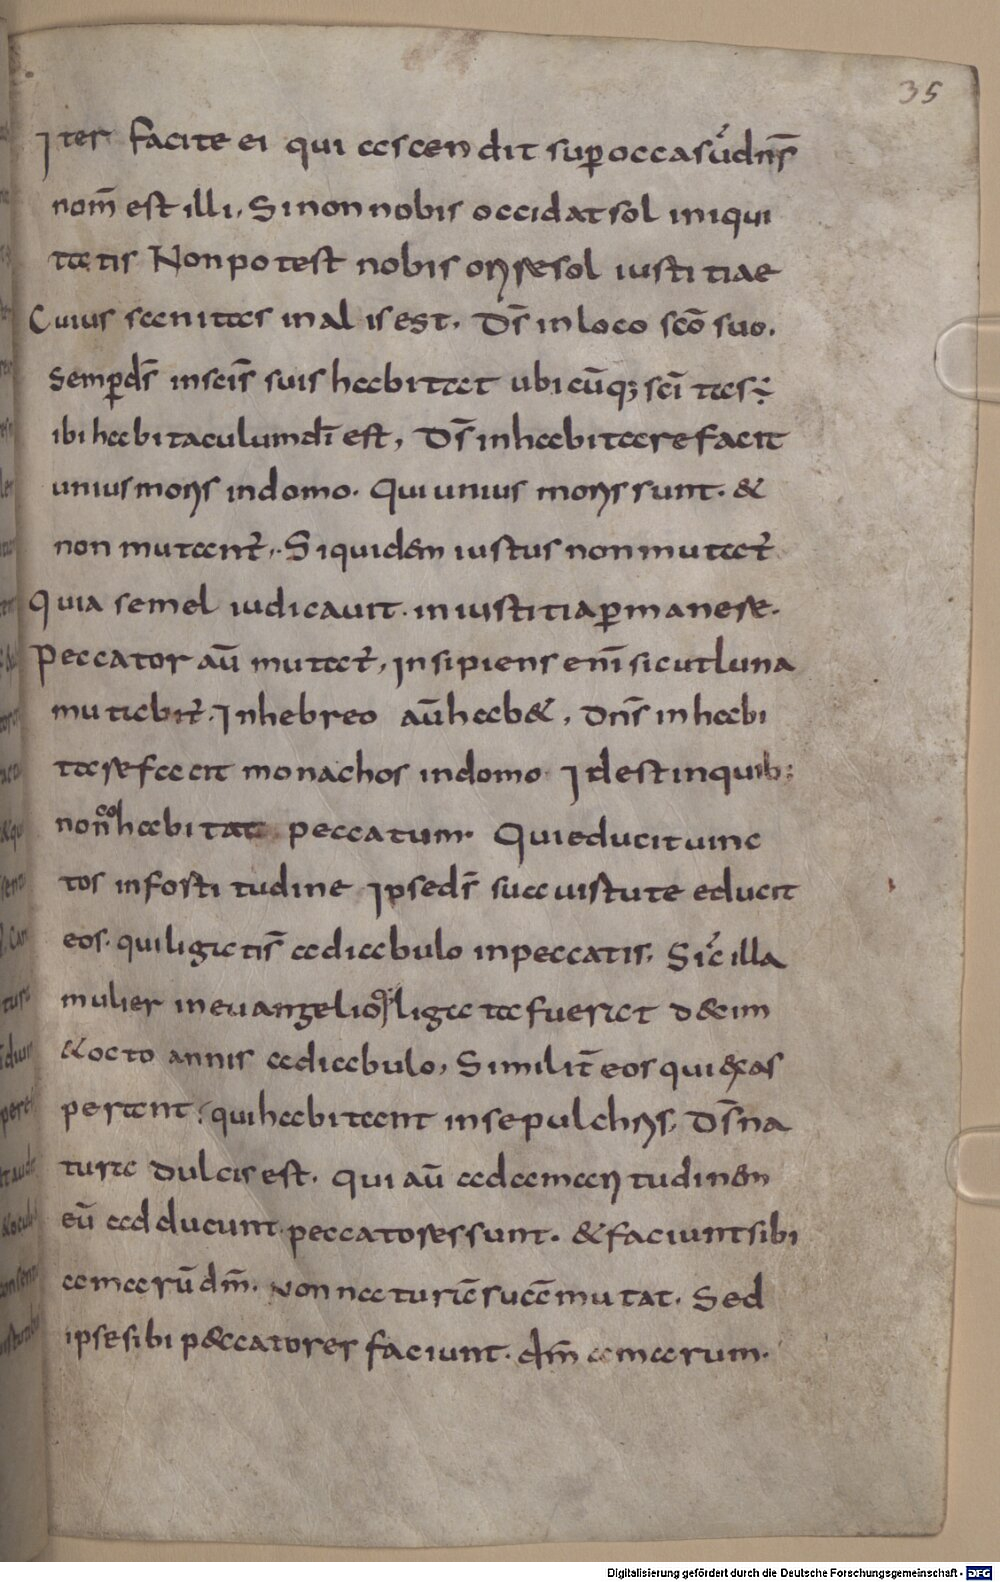 35
Iter facite ei qui ascendit sup̄ occasū dn̄s
nom̄ est illi, Si non nobis occidat sol iniqui
tatis Non potest nobis orire sol iustitiae
Cuius sanitas in alis est. Ds̄ in loco sc̄o suo.
semp̄ ds̄ in sc̄is suis habitat ubicūq; sc̄itas ÷
ibi habitaculum dī est, Ds̄ in habitare facit
unius moris in domo. Qui unius moris sunt. &
non mutant̄,. Si quidem iustus non mutat̄
Quia semel iudicauit. in iustitia p̄manere.
Peccator aū mutat̄, insipiens enī sicut luna
mutabit̄. In hebreo aū hab&, dn̄s in habi
tare facit monachos in domo Id est in quib;
non cohabitat peccatum. Qui educit uinc
tos in fortitudine Ipse ds̄ sua uirtute educit
eos. qui ligatis̄ a diabulo in peccatis. Sic̄ illa
mulier in euangelio q; ligata fuerat d&im
& octo annis a diabulo, Similit̄ eos qui exas
perant. qui habitant in sepulchris. Ds̄ na
tura dulcis est. qui aū ad amaritudinem
eū adducunt. peccatores sunt. & faciunt sibi
amarū dm̄. Non naturā suā mutat. Sed
ipse sibi p&ccatores faciunt. dm̄ amarum.
Digitalisierung gefördert durch die Deutsche Forschungsgemeinschaft - DFG